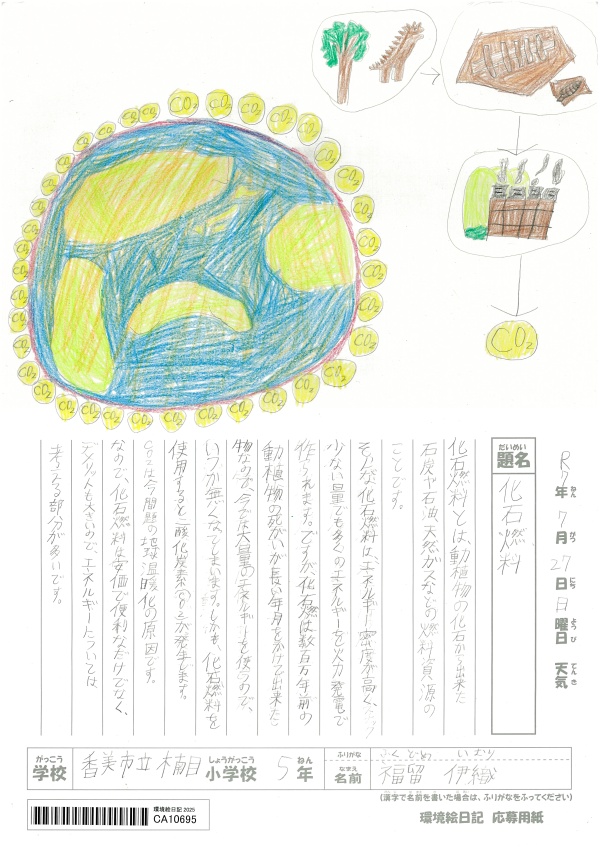 CO2
R7年7月27日日曜日 天気
ねん がつ にち ようび てんき
だいめい
題名 化石燃料
化石燃料とは、動植物の化石から出来た
石炭や石油、天然ガスなどの燃料資源の
ことです。
そんな化石燃料はエネルギー密度が高く、
少ない量でも多くのエネルギーを火力発電で
作られます。ですが、化石燃は数百万年前の
動植物の死がいが長い年月をかけて出来た
物なので、今では大量のエネルギーを使うので、
いつか無くなてしまいます。しかも、化石燃料を
使用すると二酸化炭素(CO2)が発生します。
CO2は今問題の地球温暖化の原因です。
なので、化石燃料は安価で便利なだけでなく、
デメリットも大きいので、エネルギーについては
考える部分が多いです。
がっこう しょうがっこう ねん
学校 香美市立 楠目 小学校 5年
ふりがな ふくどめ いおり
なまえ
名前 福留 伊織
(漢字で名前を書いた場合は、ふりがなをふってください)
環境絵日記 2025
CA10695
環境絵日記 応募用紙